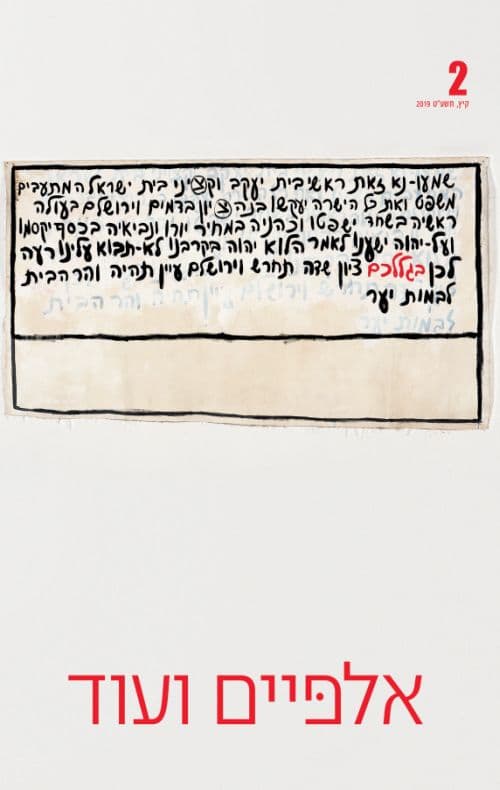 2
קיץ, תשע"ט 2019
שמעו-נא זאת ראשי בית יעקב וקציני בית ישראל המתעבים
משפט ואת כל הישרה יעקשו בנה ציון בדמים וירושלים בעולה
ראשיה בשחד ישפטו וכהניה במחיר יורו ונביאיה בכסף יקסמו
ועל-יהוה ישענו לאמר הלוא יהוה בקרבנו לא-תבוא עלינו רעה
לכן בגללכם ציון שדה תחרש וירושלם עיין תהיה והר הבית
לבמות יער
לבמות יער
אלפּיים ועוד